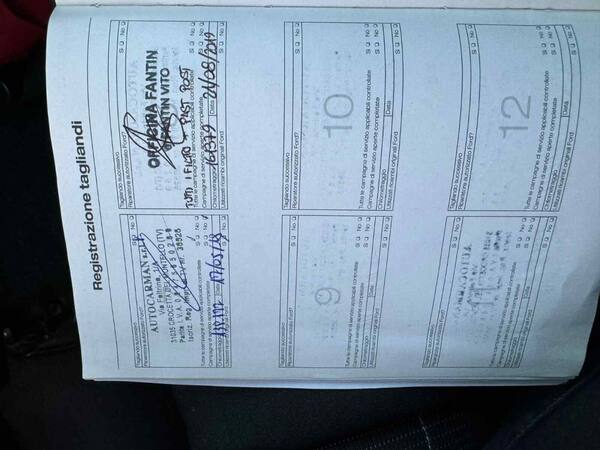 Registrazione tagliandi
Tagliando successivo
Riparatore autorizzato Ford? Sì No
AUTOCARMAN s.r.l.
Via Feltrina,
31035 CROCETTA DEL MONTELLO (TV)
Partita I.V.A.
Iscriz. Reg. Impr.
Tutte le campagne di servizio applicabili controllate Sì No
Campagne di servizio aperte completate Sì No
Chilometraggio Data 17/05/18
Utilizzati ricambi originali Ford Sì No
Tagliando successivo
Riparatore autorizzato Ford? Sì No
OFFICINA FANTIN
FANTIN VITO
TUTTI I FILTRI
Tutte le campagne di servizio applicabili controllate Sì No
Campagne di servizio aperte completate Sì No
Chilometraggio 160379 Data 21/08/2019
Utilizzati ricambi originali Ford Sì No
9
Tagliando successivo
Riparatore autorizzato Ford? Sì No
Tutte le campagne di servizio applicabili controllate Sì No
Campagne di servizio aperte completate Sì No
Chilometraggio Data
Utilizzati ricambi originali Ford Sì No
10
Tagliando successivo
Riparatore autorizzato Ford? Sì No
Tutte le campagne di servizio applicabili controllate Sì No
Campagne di servizio aperte completate Sì No
Chilometraggio Data
Utilizzati ricambi originali Ford Sì No
Tagliando successivo
Riparatore autorizzato Ford? Sì No
Tutte le campagne di servizio applicabili controllate Sì No
Campagne di servizio aperte completate Sì No
Chilometraggio Data
Utilizzati ricambi originali Ford Sì No
12
Tagliando successivo
Riparatore autorizzato Ford? Sì No
Tutte le campagne di servizio applicabili controllate Sì No
Campagne di servizio aperte completate Sì No
Chilometraggio Data
Utilizzati ricambi originali Ford Sì No